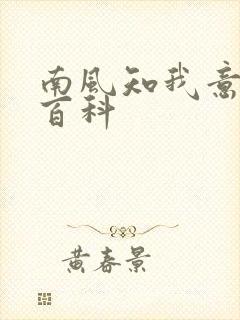 南風知我意
百科
黄春景